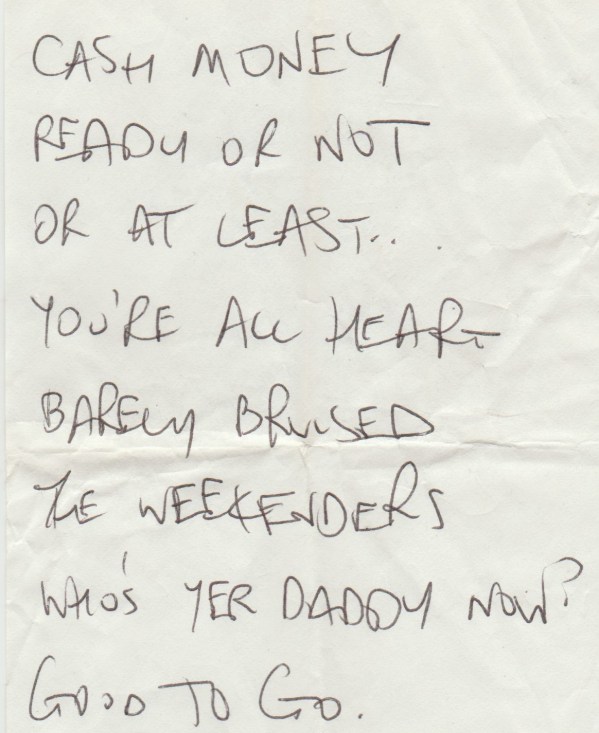 CASH MONEY
READY OR NOT
OR AT LEAST...
YOU'RE ALL HEART
BARELY BRUISED
THE WEEKENDERS
WHO'S YER DADDY NOW?
GOOD TO GO.